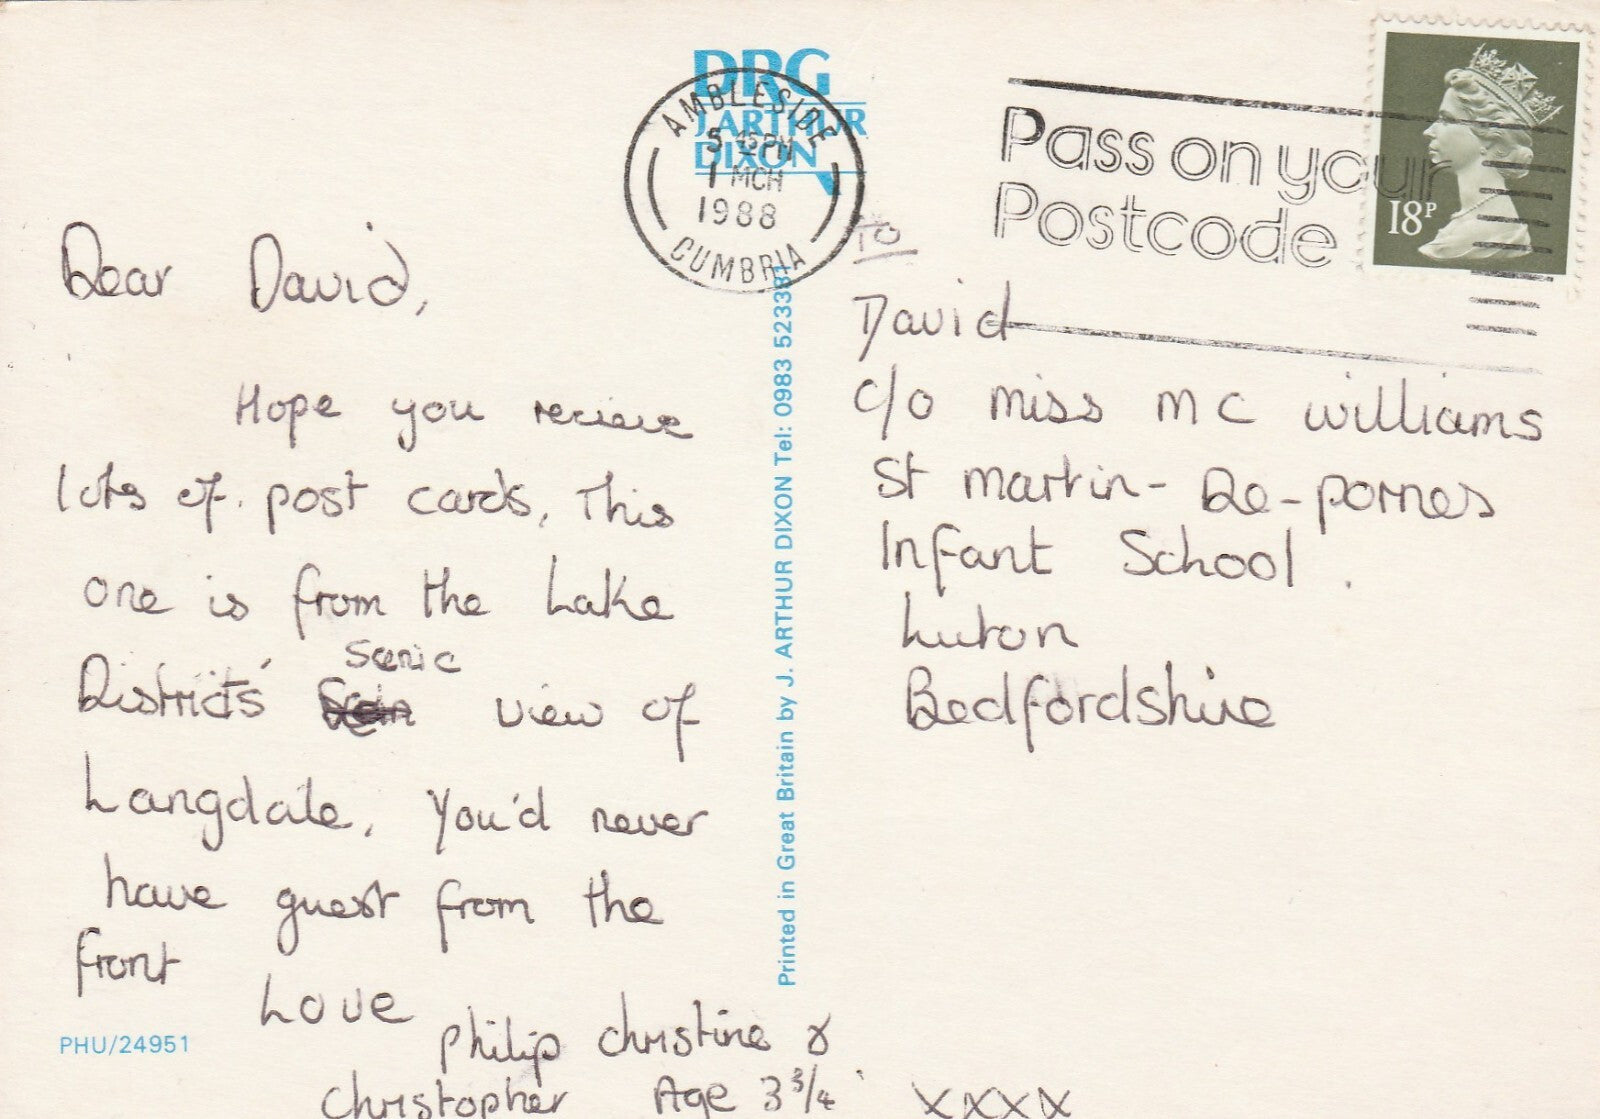 DRG
J.ARTHUR
DIXON
AMBLESIDE
5 45PM
1 MCH
1988
CUMBRIA
Pass on your
Postcode
18P
Dear David,
Hope you recieve
lots of post cards, This
one is from the Lake
Districts' Scenic view of
Langdale, You'd never
have guest from the
front
Love
Philip Christine &
Christopher Age 3 3/4 xxxx
PHU/24951
Printed in Great Britain by J. ARTHUR DIXON Tel: 0983 523381
To
David
c/o miss mc williams
St Martin-De-pornes
Infant School.
Luton
Bedfordshire